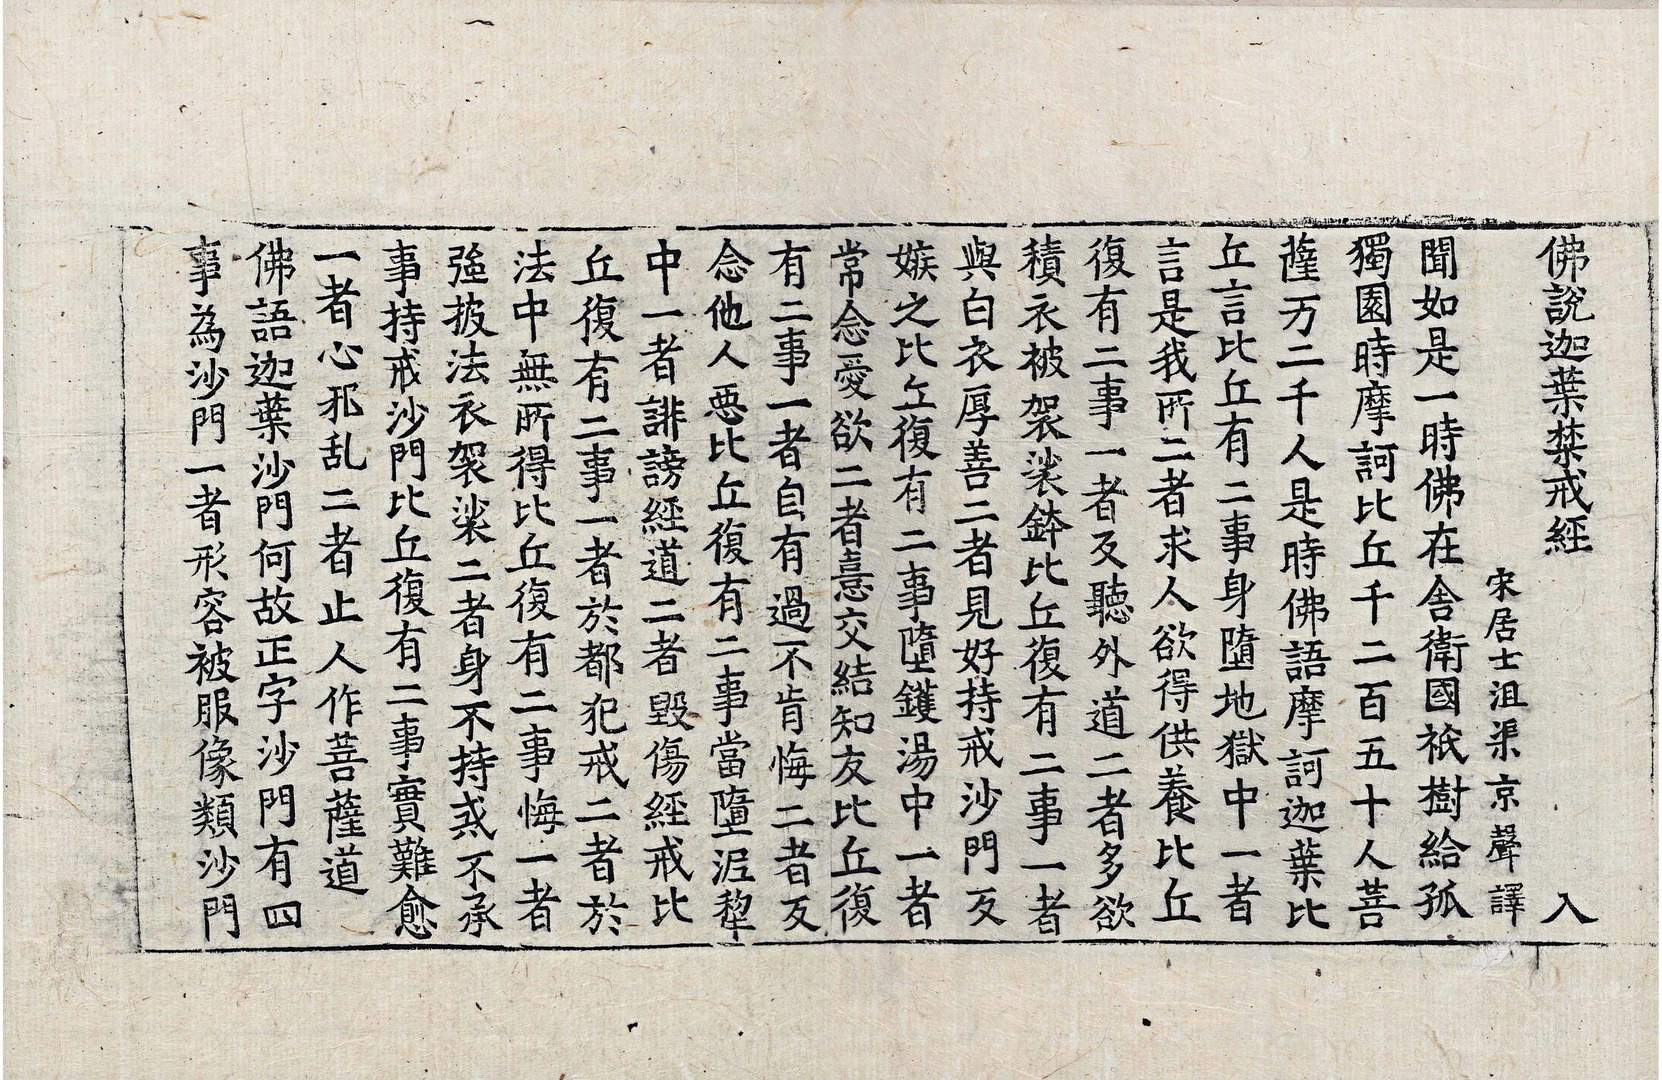 佛說迦葉禁戒經　入
宋居士沮渠京聲譯
聞如是一時佛在舍衛國祇樹給孤
獨園時摩訶比丘千二百五十人菩
薩万二千人是時佛語摩訶迦葉比
丘言比丘有二事身墮地獄中一者
言是我所二者求人欲得供養比丘
復有二事一者反聽外道二者多欲
積衣被袈裟鉢比丘復有二事一者
與白衣厚善二者見好持戒沙門反
嫉之比丘復有二事墮鑊湯中一者
常念愛欲二者憙交結知友比丘復
有二事一者自有過不肯悔二者反
念他人惡比丘復有二事當墮泥犁
中一者誹謗經道二者毀傷經戒比
丘復有二事一者於都犯戒二者於
法中無所得比丘復有二事悔一者
強披法衣袈裟二者身不持戒不承
事持戒沙門比丘復有二事實難愈
一者心邪乱二者止人作菩薩道
佛語迦葉沙門何故正字沙門有四
事為沙門一者形容被服像類沙門